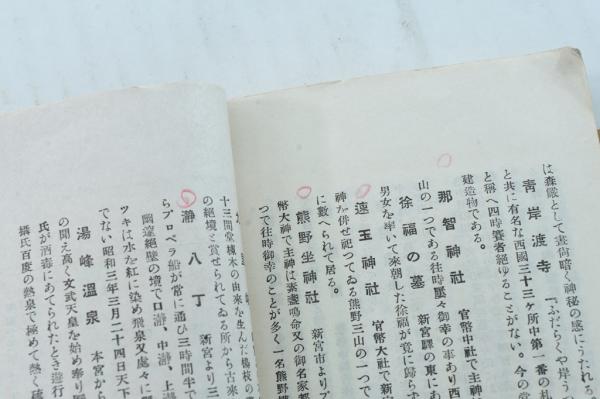 は森厳として晝尚暗く神秘の感にうたれる。
靑岸渡寺 『ふだらくや岸うつ
と共に有名な西國三十三ヶ所中第一番の札
と稱へ四時賽者絕ゆることがない。今の堂
建造物である。
那智神社 官幣中社で主神
山の一つである往時屢々御幸の事あり西
徐福の墓 新宮驛の東にあ
男女を率いて來朝した徐福が竟に歸らず
速玉神社 官幣大社で新
神を併せ祀つてゐる熊野三山の一つで
に數へられて居る。
熊野坐神社 新宮市よりプ
幣大神で主神は素盞鳴命又の御名家都
つで往時御幸のことが多く一名熊野權
十三間堂棟木の由來を生んだ楊枝の
の絕境と賞せられてゐる所から古來
瀞八丁 新宮より三
らプロペラ船が常に通ひ三時間半で
幽邃絕壁の境で口瀞、中瀞、上瀞
ツキは水を紅に染め飛泉又處々に懸
でない昭和三年三月二十四日天下
湯峰溫泉 本宮から
の聞え高く文武天皇を始め奉り
氏が酒毒にあてられたとき遊行
攝氏百度の熱泉で極めて熱く硫